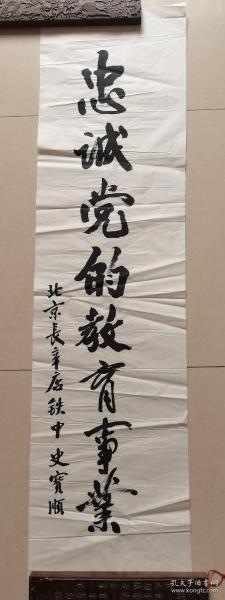 忠诚党的教育事業
北京長辛店鉄中史寳順
孔夫子旧书网
www.kongfz.com